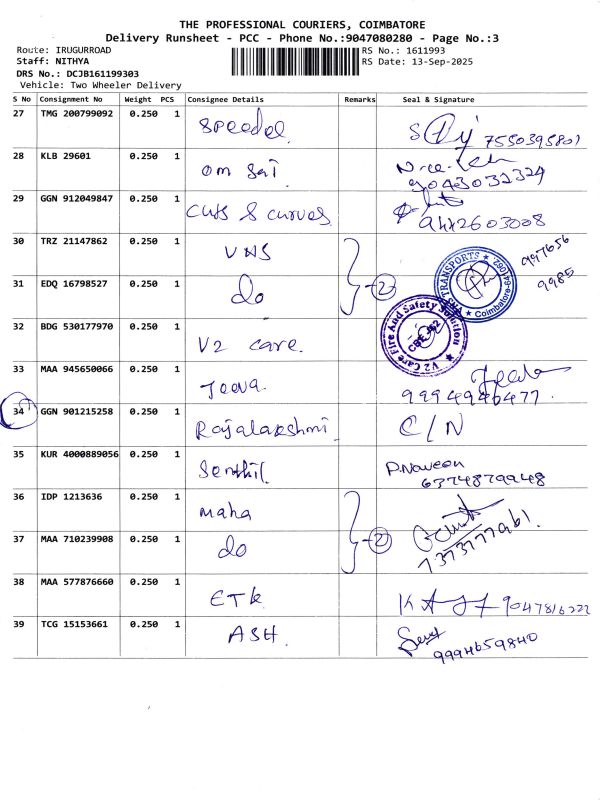 THE PROFESSIONAL COURIERS, COIMBATORE
Delivery Runsheet - PCC - Phone No.:9047080280 - Page No.:3
Route: IRUGURROAD
Staff: NITHYA
DRS No.: DCJB161199303
Vehicle: Two Wheeler Delivery
RS No.: 1611993
RS Date: 13-Sep-2025
S No Consignment No Weight PCS Consignee Details Remarks Seal & Signature
27 TMG 200799092 0.250 1 Speedel 7550395801
28 KLB 29601 0.250 1 Om Sai 9043032324
29 GGN 912049847 0.250 1 Cuts & curves 9442603008
30 TRZ 21147862 0.250 1 VNS
31 EDQ 16798527 0.250 1 do
2
TRANSPORTS Coimbatore-641062
997656
9985
32 BDG 530177970 0.250 1 V2 care.
V2 Care Fire And Safety Solution
CBE-62
33 MAA 945650066 0.250 1 Jeeva. 9994946477
34 GGN 901215258 0.250 1 Rajalakshmi C/N
35 KUR 4000889056 0.250 1 Senthil. P.Naveen
6374879948
36 IDP 1213636 0.250 1 Maha
37 MAA 710239908 0.250 1 do
2
7373177961.
38 MAA 577876660 0.250 1 ETK
39 TCG 15153661 0.250 1 ASH. 9994659840